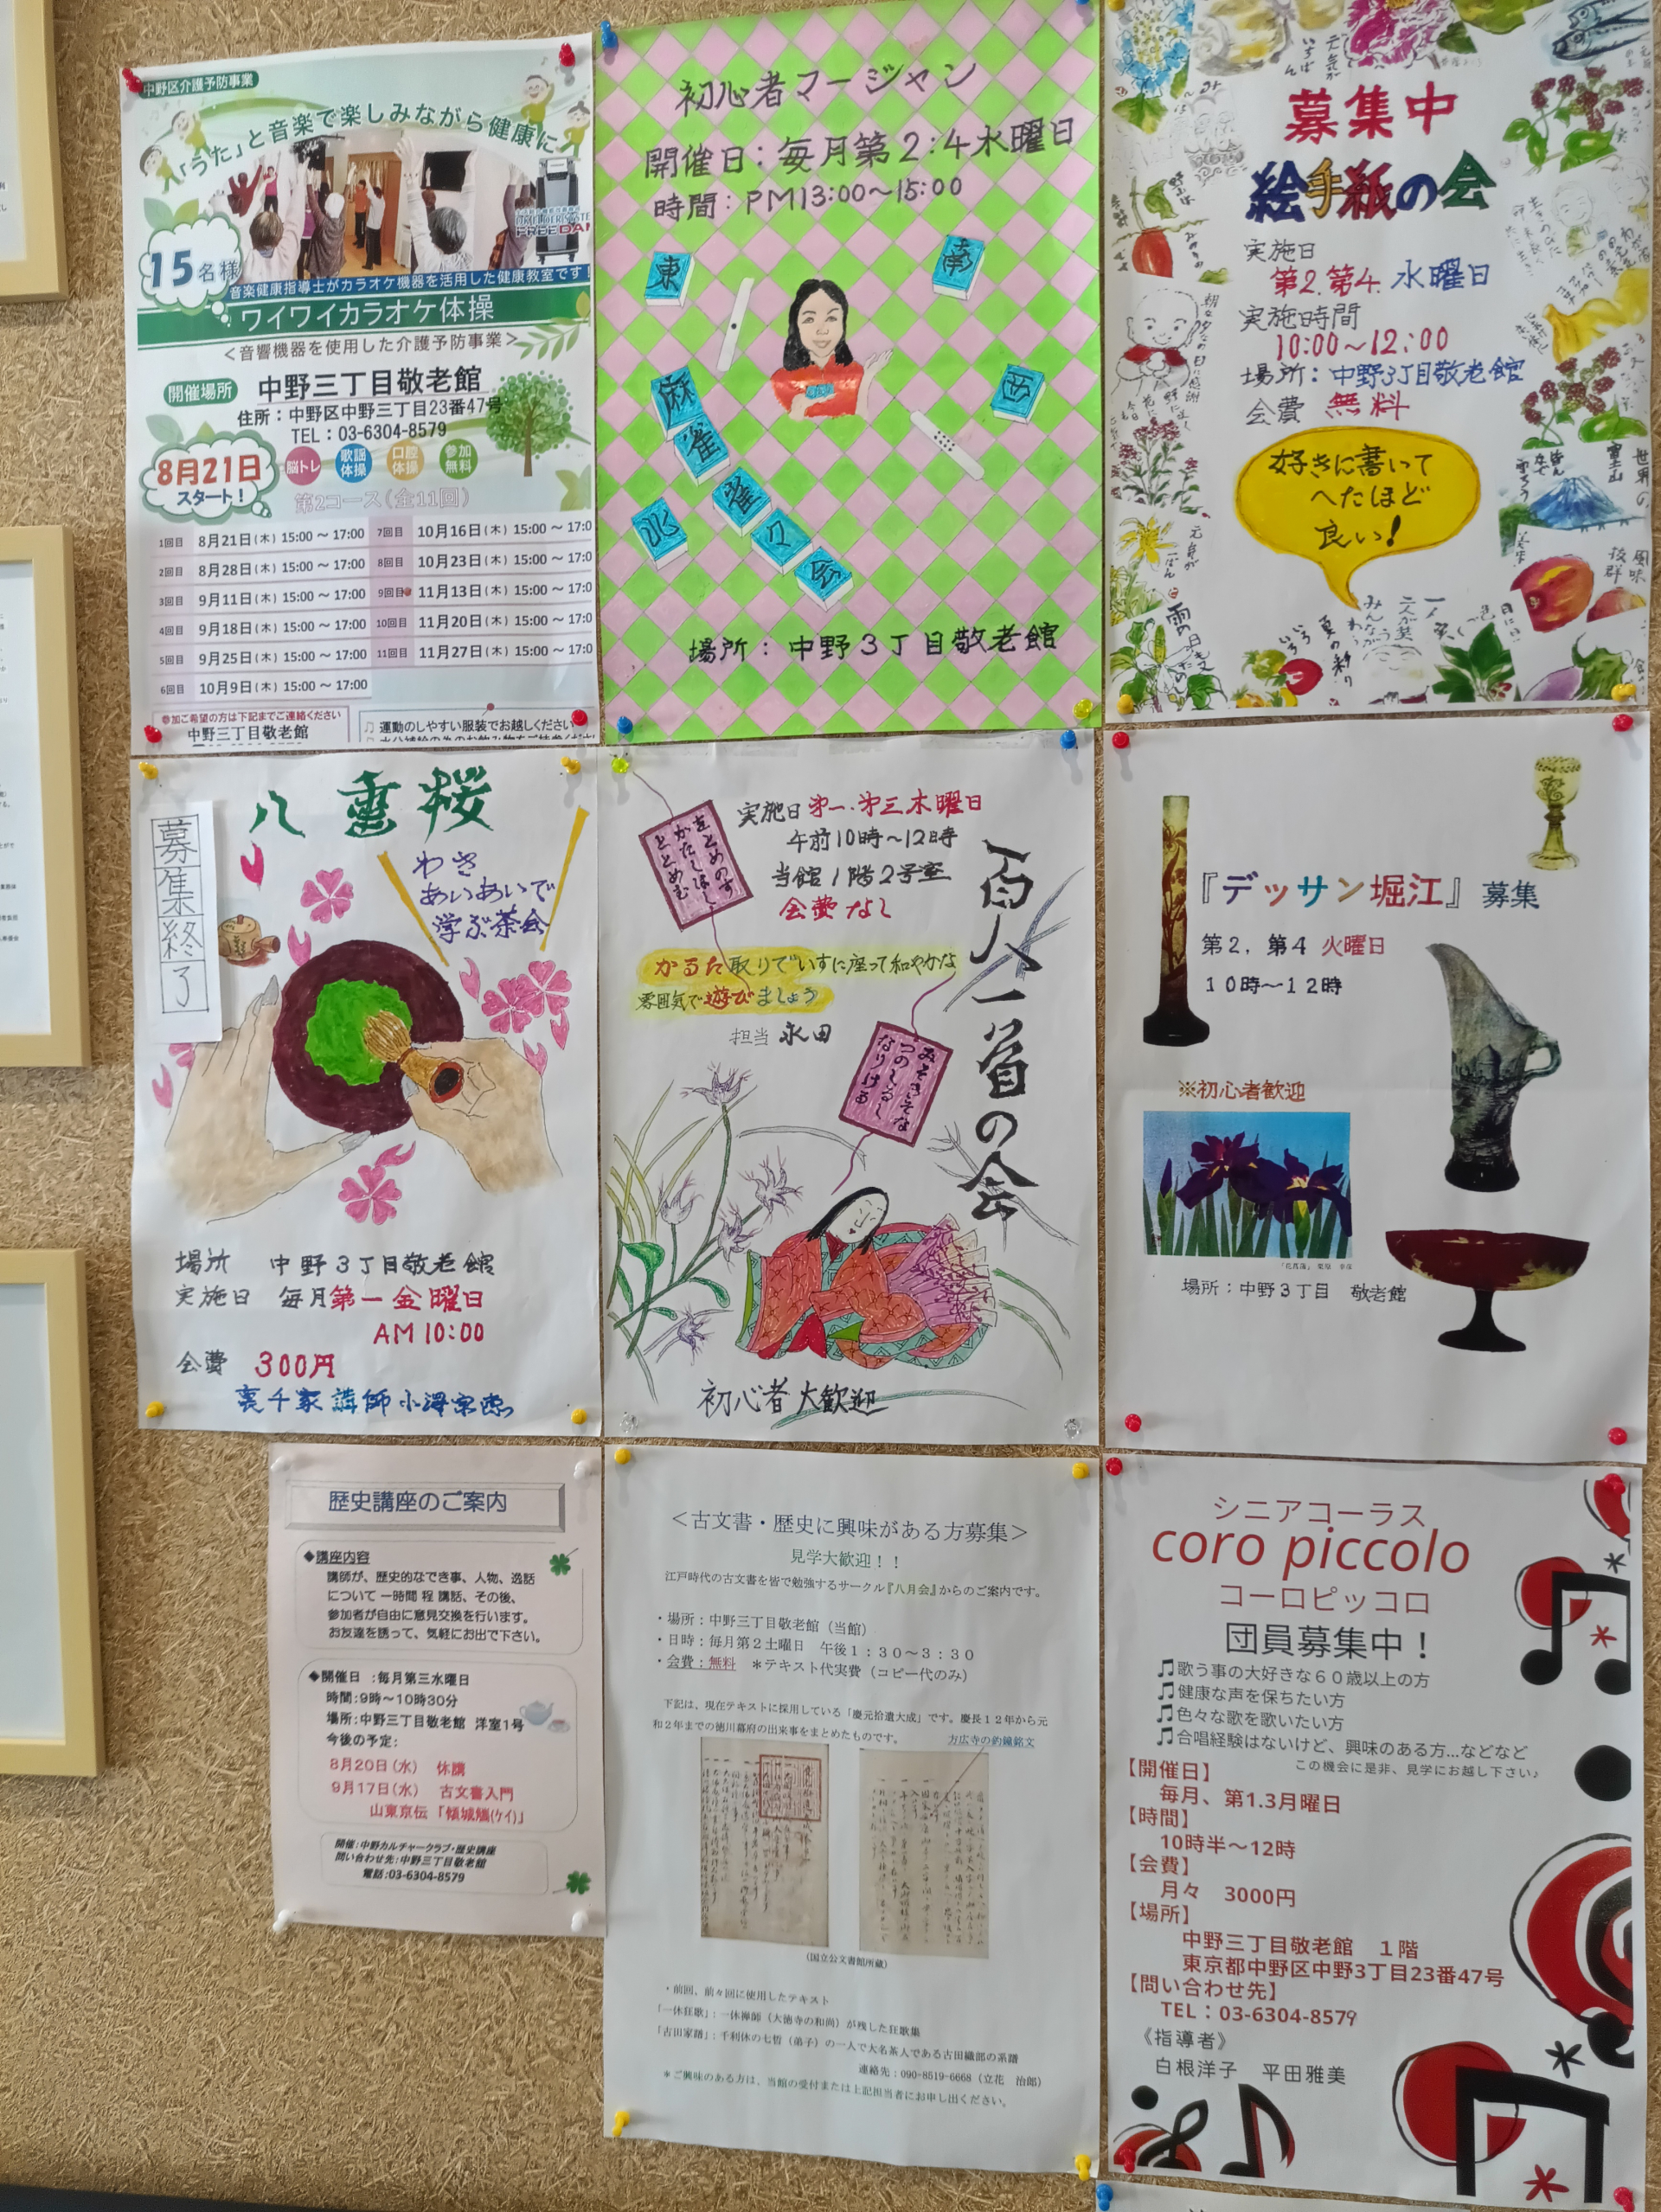 中野区介護予防事業
「うた」と音楽で楽しみながら健康に
15名様
音楽健康指導士がカラオケ機器を活用した健康教室です!
ワイワイカラオケ体操
<音響機器を使用した介護予防事業>
開催場所 中野三丁目敬老館
住所:中野区中野三丁目23番47号
TEL:03-6304-8579
8月21日
スタート!
脳トレ 歌謡体操 口腔体操 参加無料
第2コース(全11回)
1回目 8月21日(木) 15:00 ~ 17:00
2回目 8月28日(木) 15:00 ~ 17:00
3回目 9月11日(木) 15:00 ~ 17:00
4回目 9月18日(木) 15:00 ~ 17:00
5回目 9月25日(木) 15:00 ~ 17:00
6回目 10月9日(木) 15:00 ~ 17:00
7回目 10月16日(木) 15:00 ~ 17:0
8回目 10月23日(木) 15:00 ~ 17:0
9回目 11月13日(木) 15:00 ~ 17:0
10回目 11月20日(木) 15:00 ~ 17:0
11回目 11月27日(木) 15:00 ~ 17:0
参加ご希望の方は下記までご連絡ください
中野三丁目敬老館
♫ 運動のしやすい服装でお越しください
初心者マージャン
開催日:毎月第2:4水曜日
時間:PM13:00~15:00
東
南
西
北
麻
雀
雀
々
会
場所:中野3丁目敬老館
募集中
絵手紙の会
実施日
第2.第4.水曜日
実施時間
10:00~12:00
場所:中野3丁目敬老館
会費 無料
好きに書いて
へたほど
良い!
八重桜
募集終了
わき
あいあいで
学ぶ茶会
場所 中野3丁目敬老館
実施日 毎月第一金曜日
AM10:00
会費 300円
裏千家講師小澤宗恵
百人一首の会
実施日 第一.第三木曜日
午前10時~12時
当館1階2号室
会費なし
をとめのす
かたしはし
ととめむ
かるた取りでいすに座って和やかな
雰囲気で遊びましょう
担当 永田
みそきそな
つのしるし
なりける
初心者大歓迎
『デッサン堀江』募集
第2,第4 火曜日
10時~12時
※初心者歓迎
場所:中野3丁目 敬老館
歴史講座のご案内
◆講座内容
講師が、歴史的なでき事、人物、逸話
について 一時間 程 講話、その後、
参加者が自由に意見交換を行います。
お友達を誘って、気軽にお出で下さい。
◆開催日 :毎月第三水曜日
時間:9時~10時30分
場所:中野三丁目敬老館 洋室1号
今後の予定:
8月20日(水) 休講
9月17日(水) 古文書入門
山東京伝「傾城觽(ケイ)」
開催:中野カルチャークラブ・歴史講座
問い合わせ先:中野三丁目敬老館
電話:03-6304-8579
<古文書・歴史に興味がある方募集>
見学大歓迎!!
江戸時代の古文書を皆で勉強するサークル『八月会』からのご案内です。
・場所:中野三丁目敬老館(当館)
・日時:毎月第2土曜日 午後1:30~3:30
・会費:無料 *テキスト代実費(コピー代のみ)
下記は、現在テキストに採用している「慶元拾遺大成」です。慶長12年から元
和2年までの徳川幕府の出来事をまとめたものです。
方広寺の釣鐘銘文
(国立公文書館所蔵)
・前回、前々回に使用したテキスト
「一休狂歌」:一休禅師(大徳寺の和尚)が残した狂歌集
「古田家譜」:千利休の七哲(弟子)の一人で大名茶人である古田織部の系譜
連絡先:090-8519-6668(立花 治郎)
*ご興味のある方は、当館の受付または上記担当者にお申し出ください。
シニアコーラス
coro piccolo
コーロピッコロ
団員募集中!
♫歌う事の大好きな60歳以上の方
♫健康な声を保ちたい方
♫色々な歌を歌いたい方
♫合唱経験はないけど、興味のある方…などなど
この機会に是非、見学にお越し下さい♪
【開催日】
毎月、第1.3月曜日
【時間】
10時半~12時
【会費】
月々 3000円
【場所】
中野三丁目敬老館 1階
東京都中野区中野3丁目23番47号
【問い合わせ先】
TEL:03-6304-8579
《指導者》
白根洋子 平田雅美